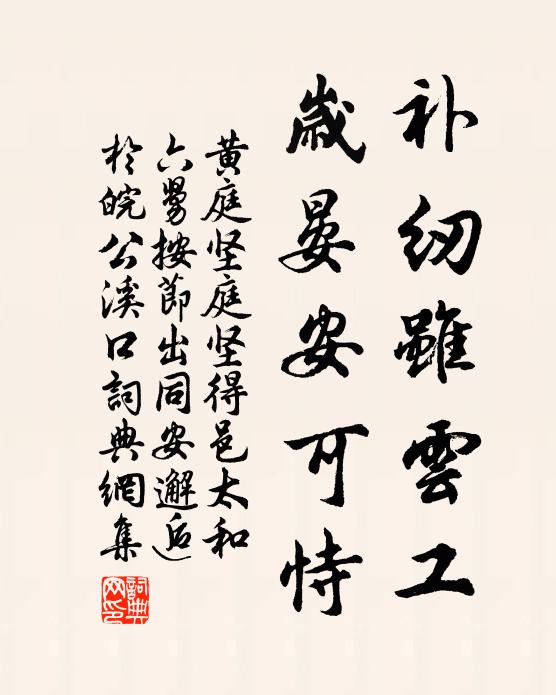 补纫雖雲工
歲晏安可恃
黄庭坚庭坚得邑太和
六舅按節出同安邂逅
於皖公溪口詞典網集
詞典网印